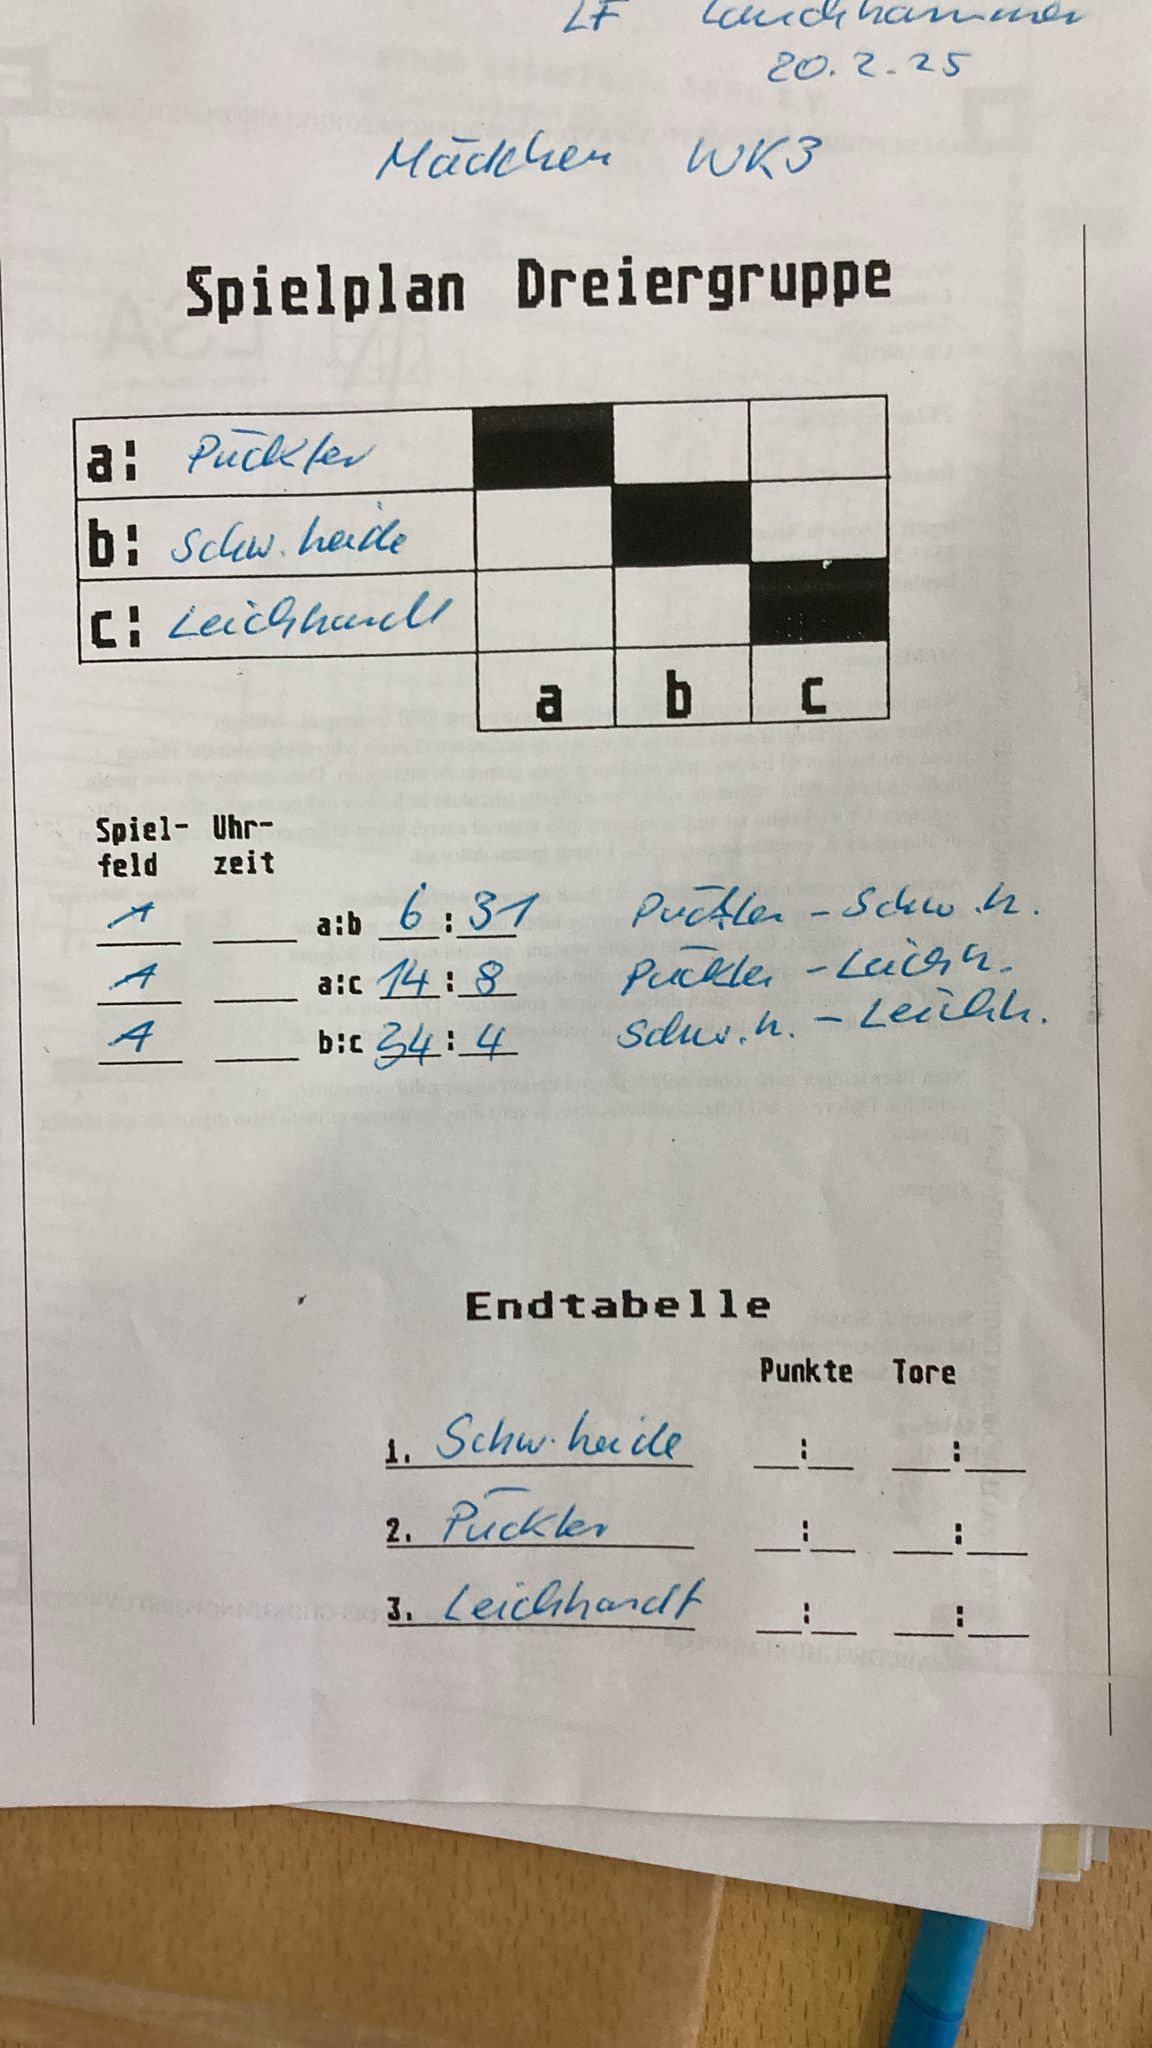 LF Lauchhammer
20.2.25
Mädchen WK3
Spielplan Dreiergruppe
a: Pückler
b: Schw. heide
c: Leichhardt
a b c
Spiel- Uhr-
feld zeit
1 a:b 6 : 31 Pückler - Schw.h.
1 a:c 14 : 8 Pückler - Leichh.
1 b:c 34 : 4 Schw.h. - Leichh.
Endtabelle
Punkte Tore
1. Schw. heide : :
2. Pückler : :
3. Leichhardt : :